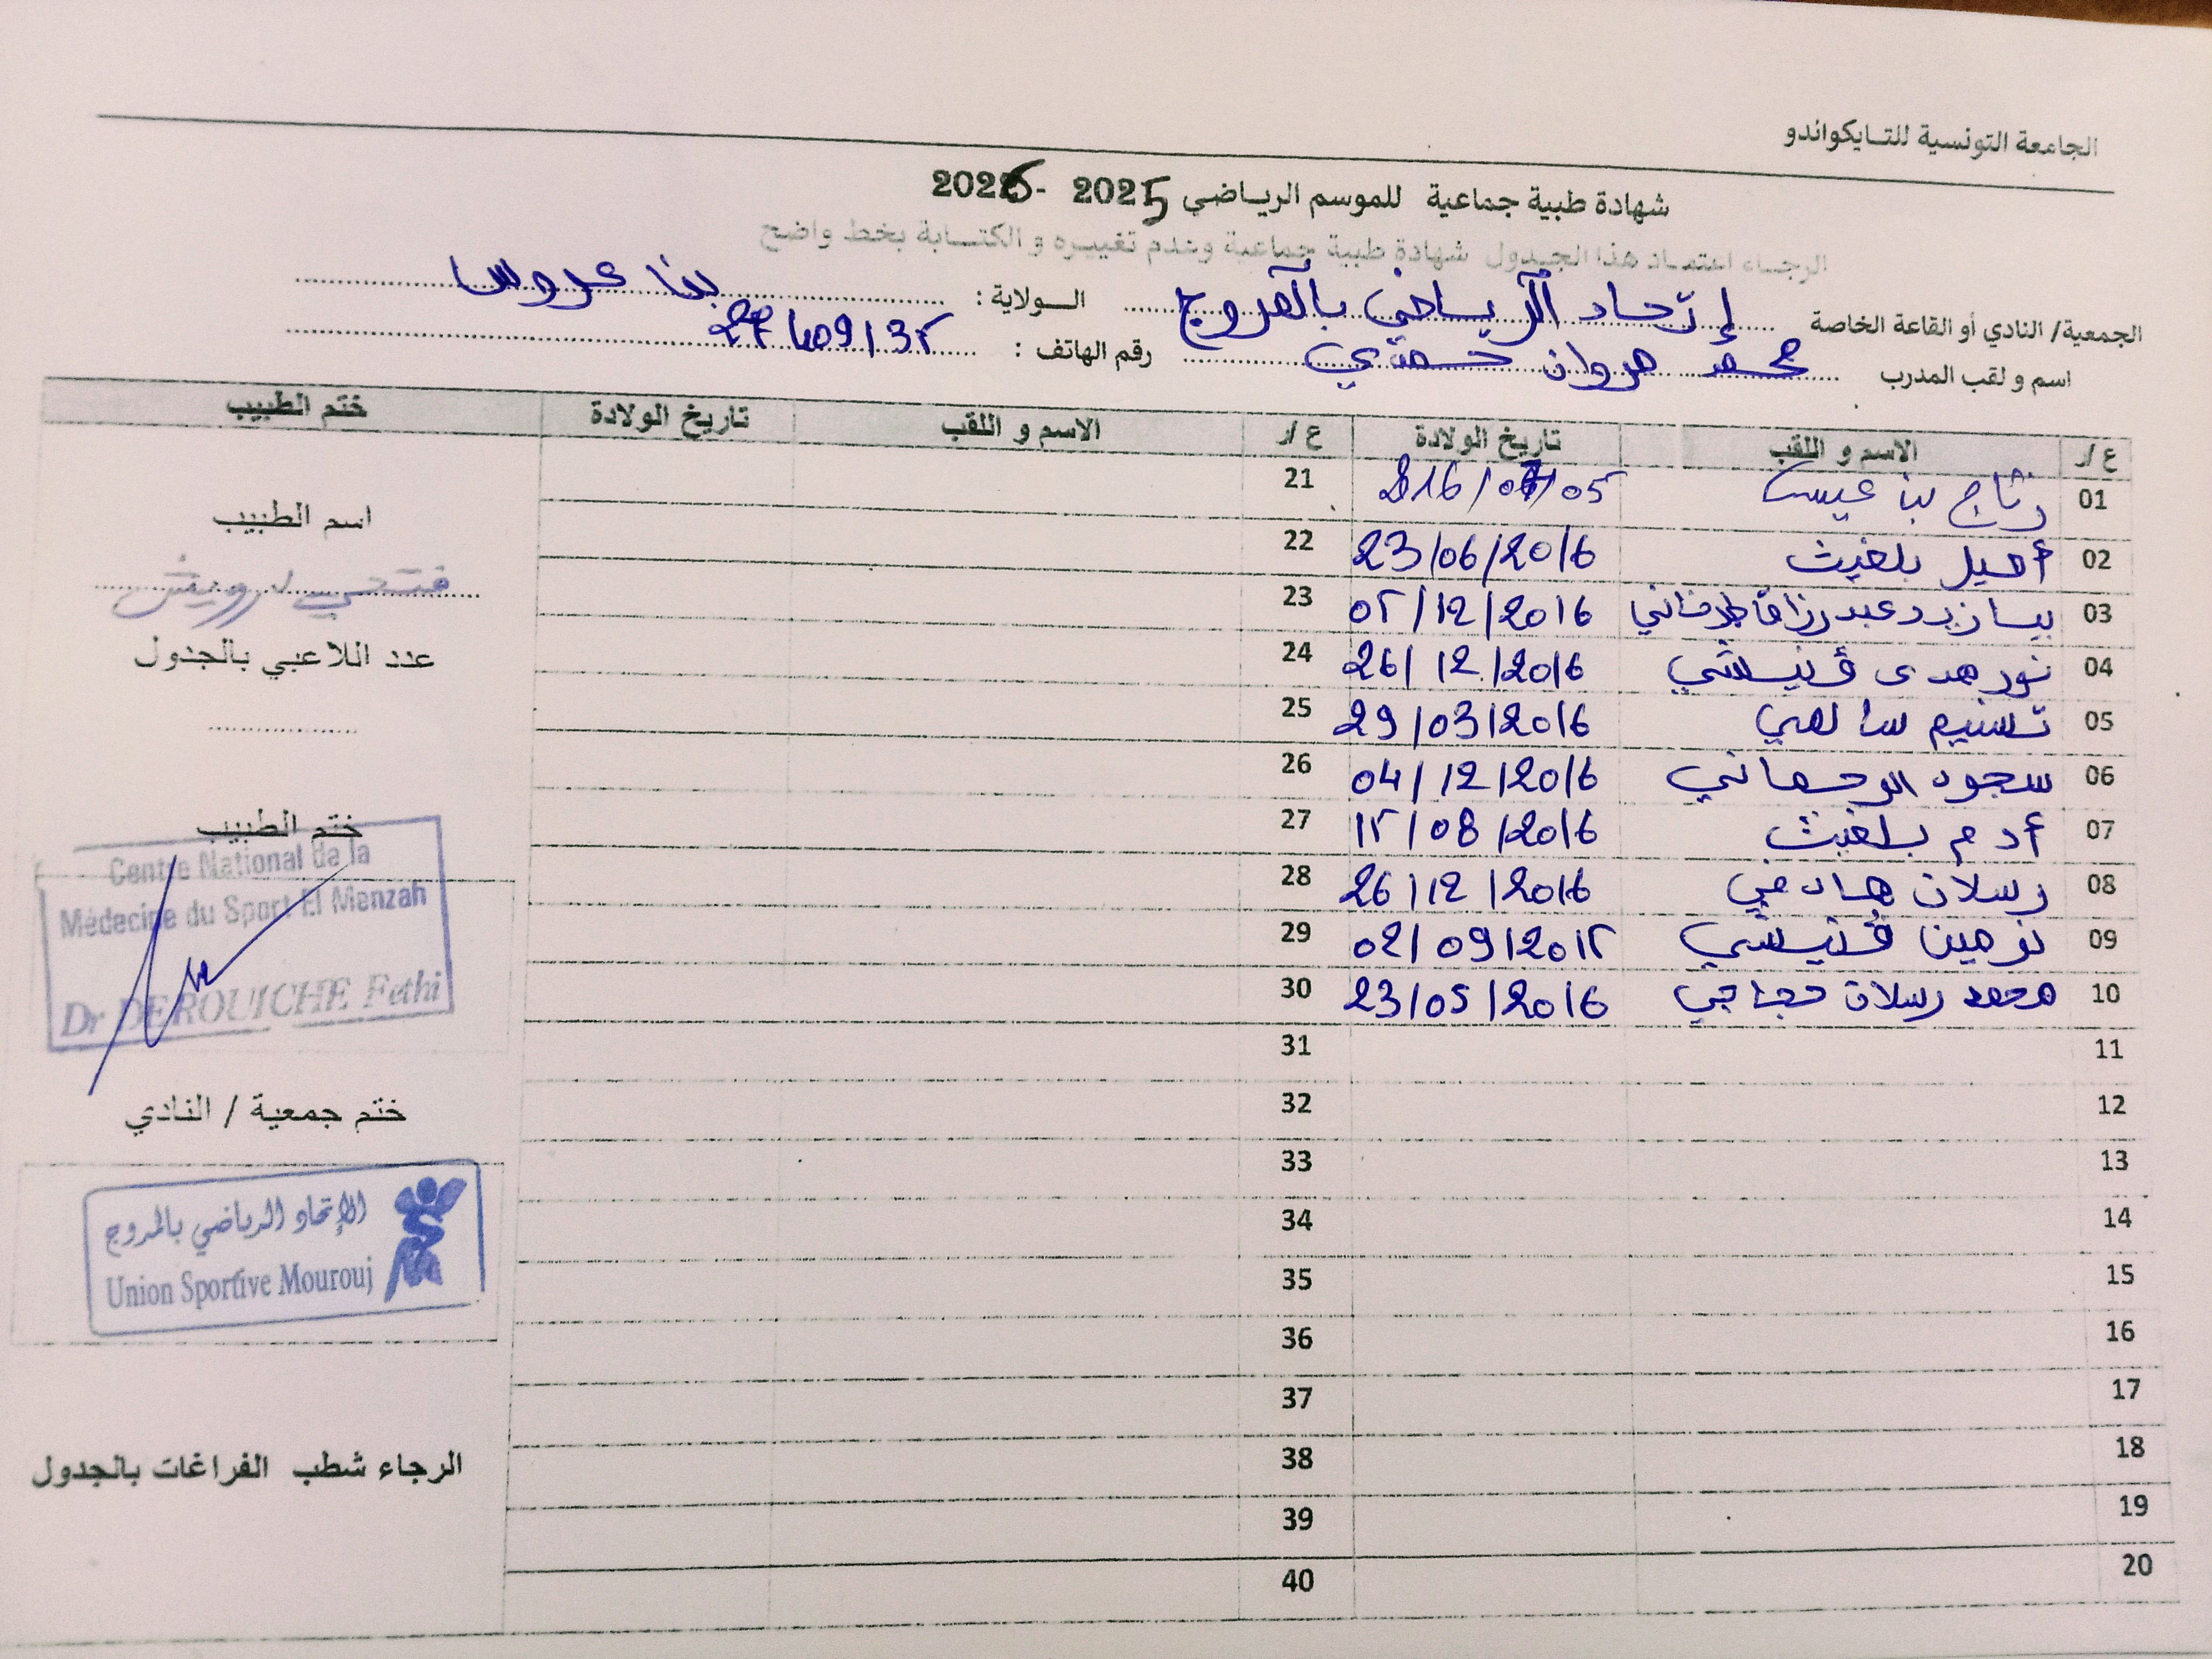 الجامعة التونسية للتايكواندو
شهادة طبية جماعية للموسم الرياضي 2025 - 2026
الرجاء اعتماد هذا الجدول شهادة طبية جماعية وعدم تغييره و الكتابة بخط واضح
الجمعية/ النادي أو القاعة الخاصة إتحاد الرياضي بالمروج الولاية : بن عروس
اسم و لقب المدرب محمد مروان حمدي رقم الهاتف :
ع/ر الاسم و اللقب تاريخ الولادة ع/ر الاسم و اللقب تاريخ الولادة ختم الطبيب
01 رتاج بن عيسى 21
02 أميل بلغيث 23/06/2016 22
03 02/12/2016 23
04 نور هدى ڨنيشي 26/12/2016 24
05 تسنيم سالمي 29/03/2016 25
06 سجود الرحماني 04/12/2016 26
07 أدم بلغيث 12/08/2016 27
08 رسلان 26/12/2016 28
09 نرمين ڨنيشي 02/09/2012 29
10 محمد رسلان حجاجي 23/05/2016 30
11 31
12 32
13 33
14 34
15 35
16 36
17 37
18 38
19 39
20 40
اسم الطبيب
فتحي درويش
عدد اللاعبي بالجدول
ختم الطبيب
Centre National de la
Médecine du Sport El Menzah
Dr DEROUICHE Fethi
ختم جمعية / النادي
الإتحاد الرياضي بالمروج
Union Sportive Mourouj
الرجاء شطب الفراغات بالجدول